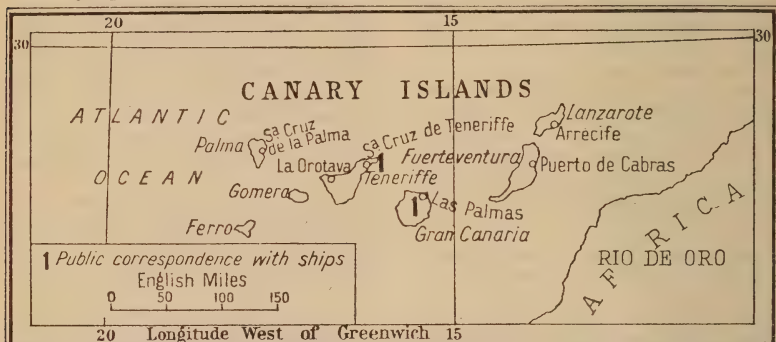 20 15
30 30
CANARY ISLANDS
ATLANTIC
OCEAN
Palma
Sa. Cruz
de la Palma
La Orotava
Sa. Cruz de Teneriffe
1
Teneriffe
Gomera
Ferro
Lanzarote
Arrecife
Fuerteventura
Puerto de Cabras
1
Las Palmas
Gran Canaria
AFRICA
RIO DE ORO
1 Public correspondence with ships
English Miles
0 50 100 150
20 Longitude West of Greenwich 15